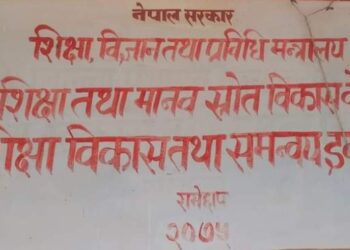 नेपाल सरकार
शिक्षा, विज्ञान तथा प्रविधि मन्त्रालय
शिक्षा तथा मानव स्रोत विकास के
क्षा विकास तथा समन्वय इका
रामेछाप
२०७५